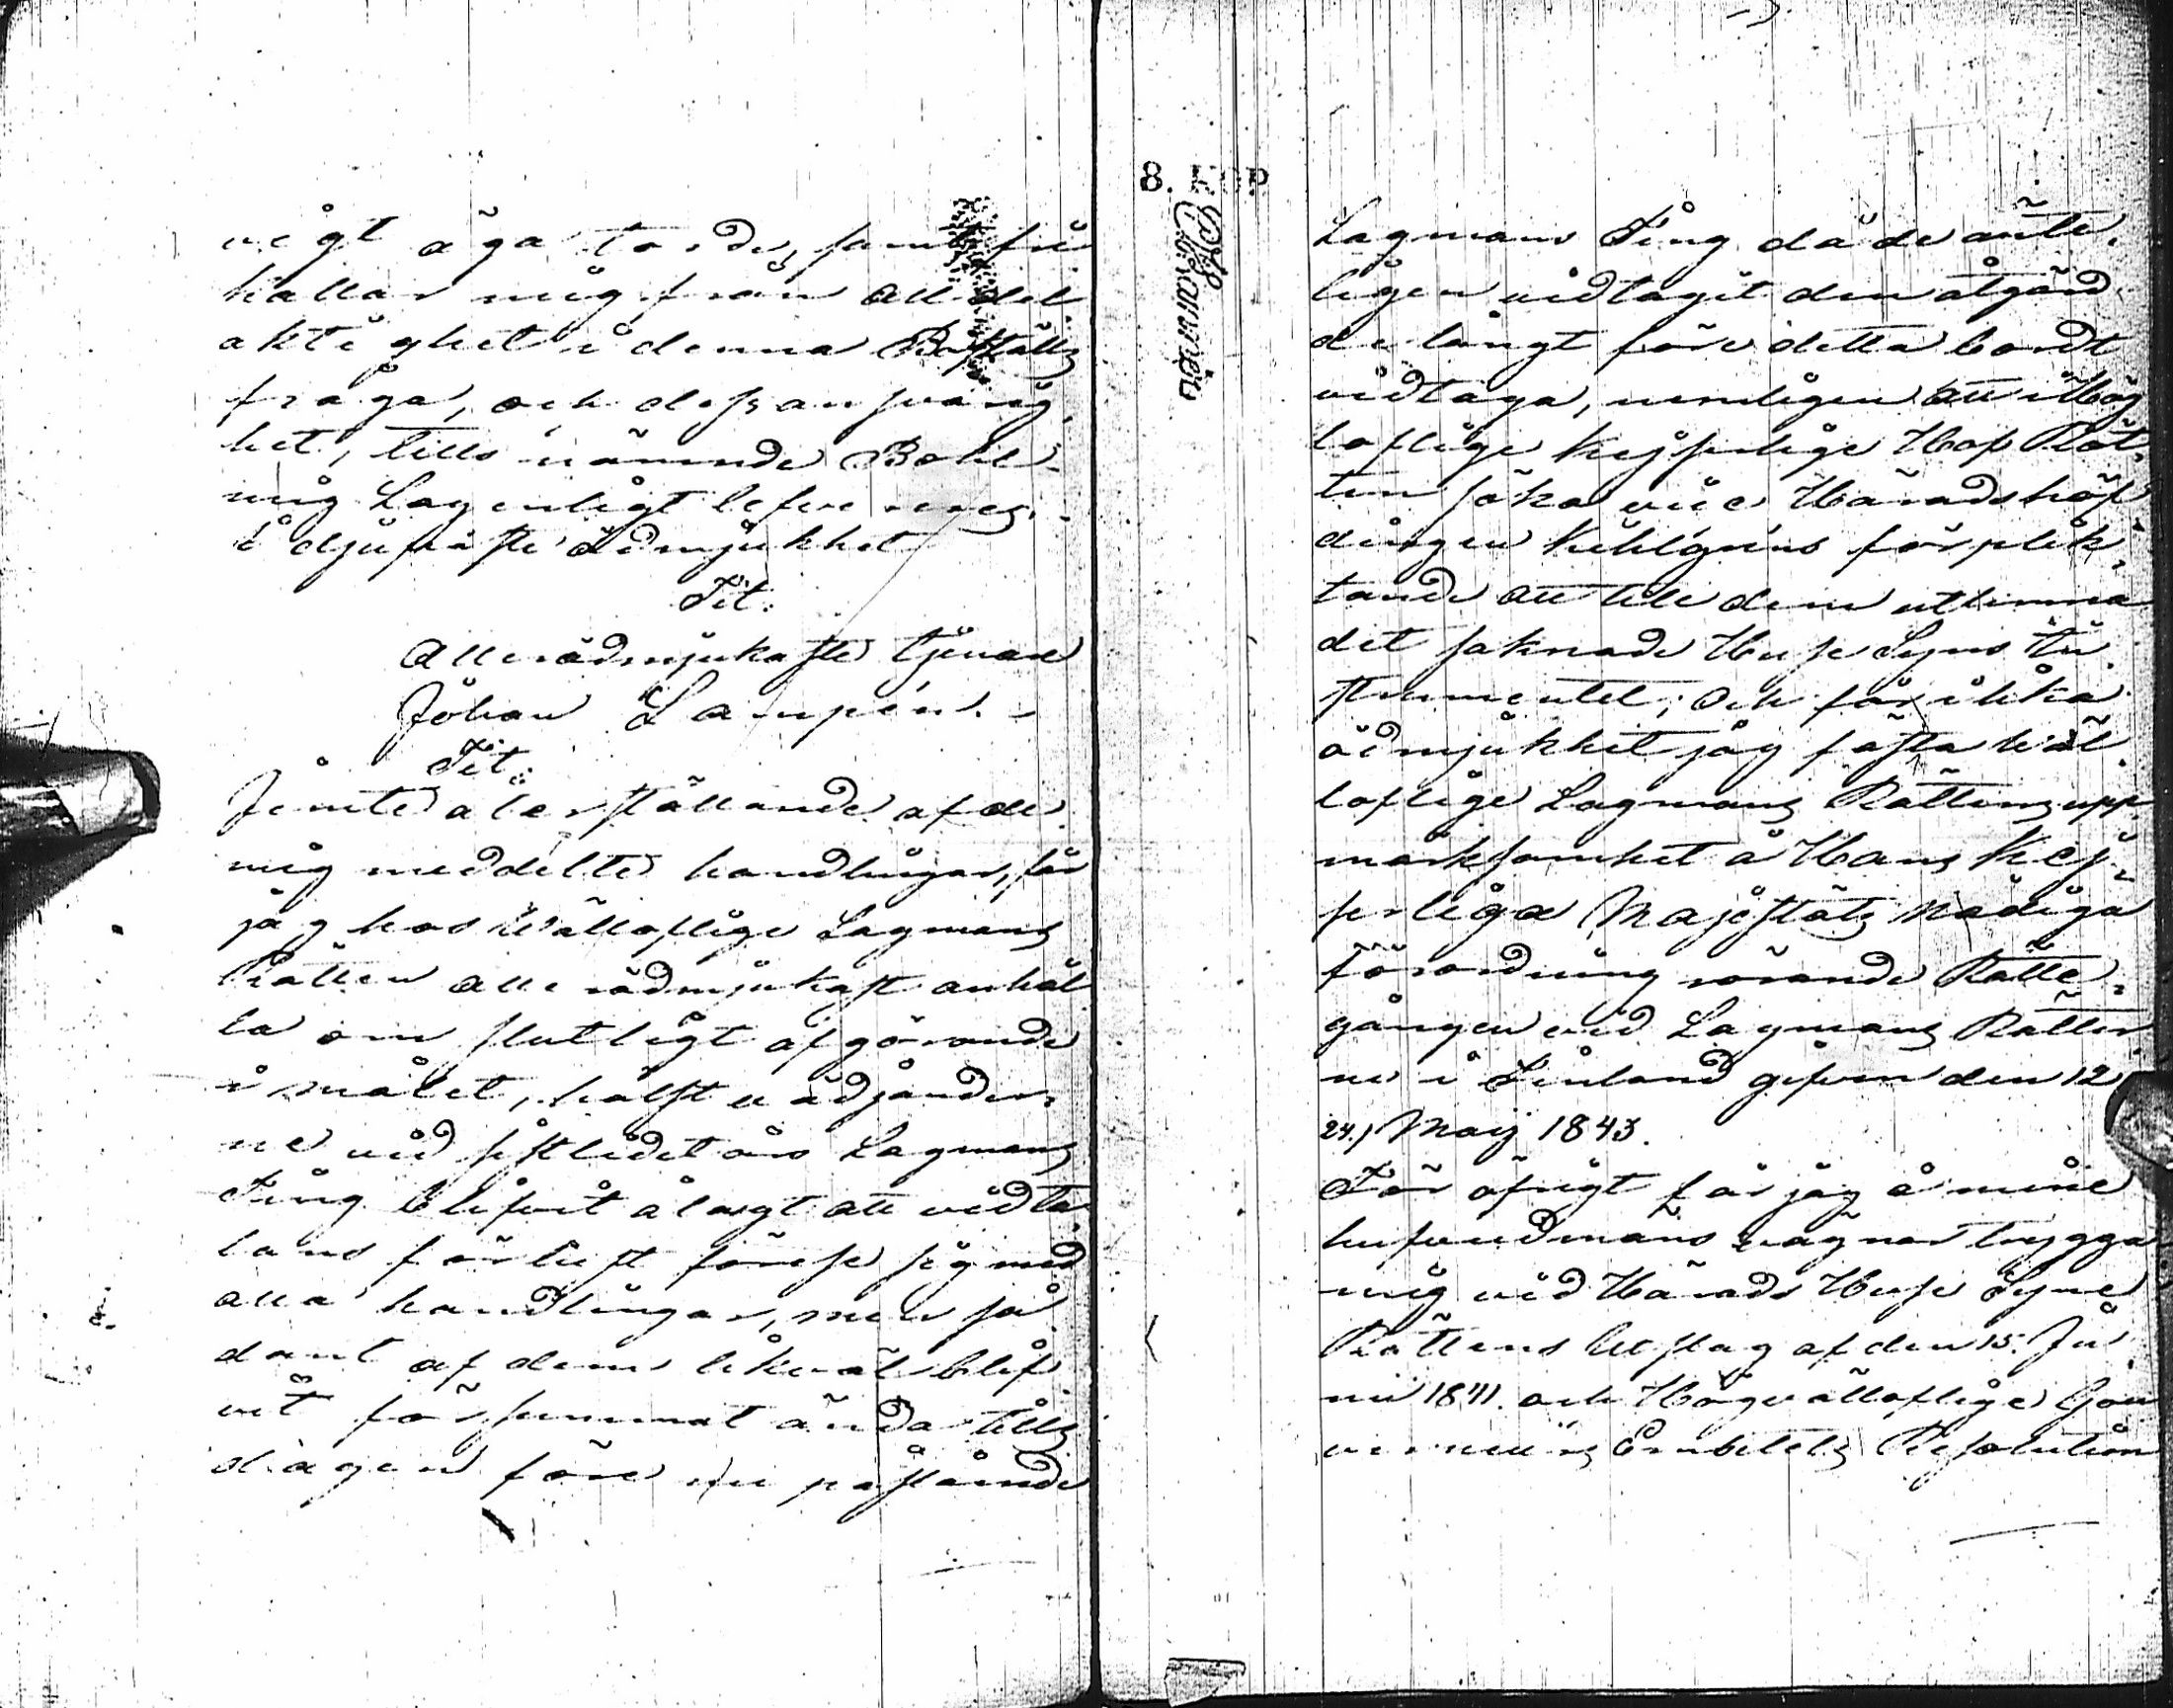 vigt äga torde, samt fri
kallar mig från all del
aktighet i denna Boställs
fråga, och dess ansvarig,
het, tills nämnde Bohl
mig Lagenligt lefvereras.
i djupaste Ödmjukhet
Tit:
Allerödmjukaste tjenare
Johan Lampén.
Tit:
Jemte återställande af de
mig meddelte handlingar, får
jag hos Wällofliga Lagmans
Rätten allerödmjukast anhål
la om slutligt afgörande
i målet, hälst vädjander,
ne vid sistledet års Lagmans
Ting blifvit ålagt att vid ta
lans förlust förese sig med
alla handlingar, men så
dant af dem likväl blif
vit försummat ända tills
dagen före nu påstående
8.
Lagmans Ting då de änte.
ligen vidtagit den åtgärd
de långt före detta bordt
vidtaga, nemligen att i Hög
loflige Kejserlige Hof Rät,
ten söka vice Häradshöf
dingen Kihlgréns förplik,
tande att till dem utlemna
det saknade Huse Syns In
strumentet; Och för i lika
ödmjukhet jag fästa Wäl
loflige Lagmans Rättens upp
märksamhet å Hans Kej
serliga Majestäts nådiga
förordning rörande Rätte,
gången vid Lagmans Rätter
ne i Finland gifven den 12
24.) Maij 1843.
För öfrigt får jag å mine
hufvudmäns vägnar trygga
mig vid Härads Huse Syne
Rättens Utslag af den 15. Ju
nii 1841. och Högvälloflige Gou
verneurs Embetets Resolution